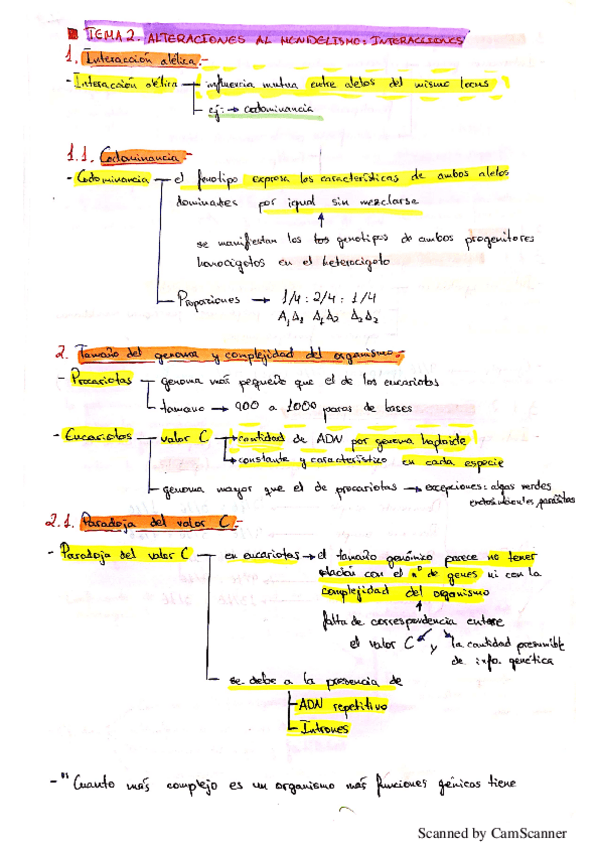 TEMA 2. ALTERACIONES AL MENDELISMO: INTERACCIONES
1. Interacción alélica.-
- Interacción alélica → influencia mutua entre alelos del mismo locus
ej: → codominancia
1.1. Codominancia.-
- Codominancia — el fenotipo expresa las características de ambos alelos
dominantes por igual sin mezclarse
↑
se manifiestan los los genotipos de ambos progenitores
homocigotos en el heterocigoto
Proporciones → 1/4 : 2/4 : 1/4
A₁A₁ A₁A₂ A₂A₂
2. Tamaño del genoma y complejidad del organismo.-
- Procariotas — genoma más pequeño que el de los eucariotas
tamaño → 900 a 1000 pares de bases
- Eucariotas — valor C → cantidad de ADN por genoma haploide
→ constante y característico en cada especie
genoma mayor que el de procariotas → excepciones: algas verdes
parásitas
2.1. Paradoja del valor C.-
- Paradoja del valor C — en eucariotas → el tamaño genómico parece no tener
relación con el nº de genes ni con la
complejidad del organismo
↑
falta de correspondencia entre
el valor C y la cantidad presumible
de info. genética
se debe a la presencia de
ADN repetitivo
Intrones
- "Cuanto más complejo es un organismo más funciones génicas tiene
Scanned by CamScanner